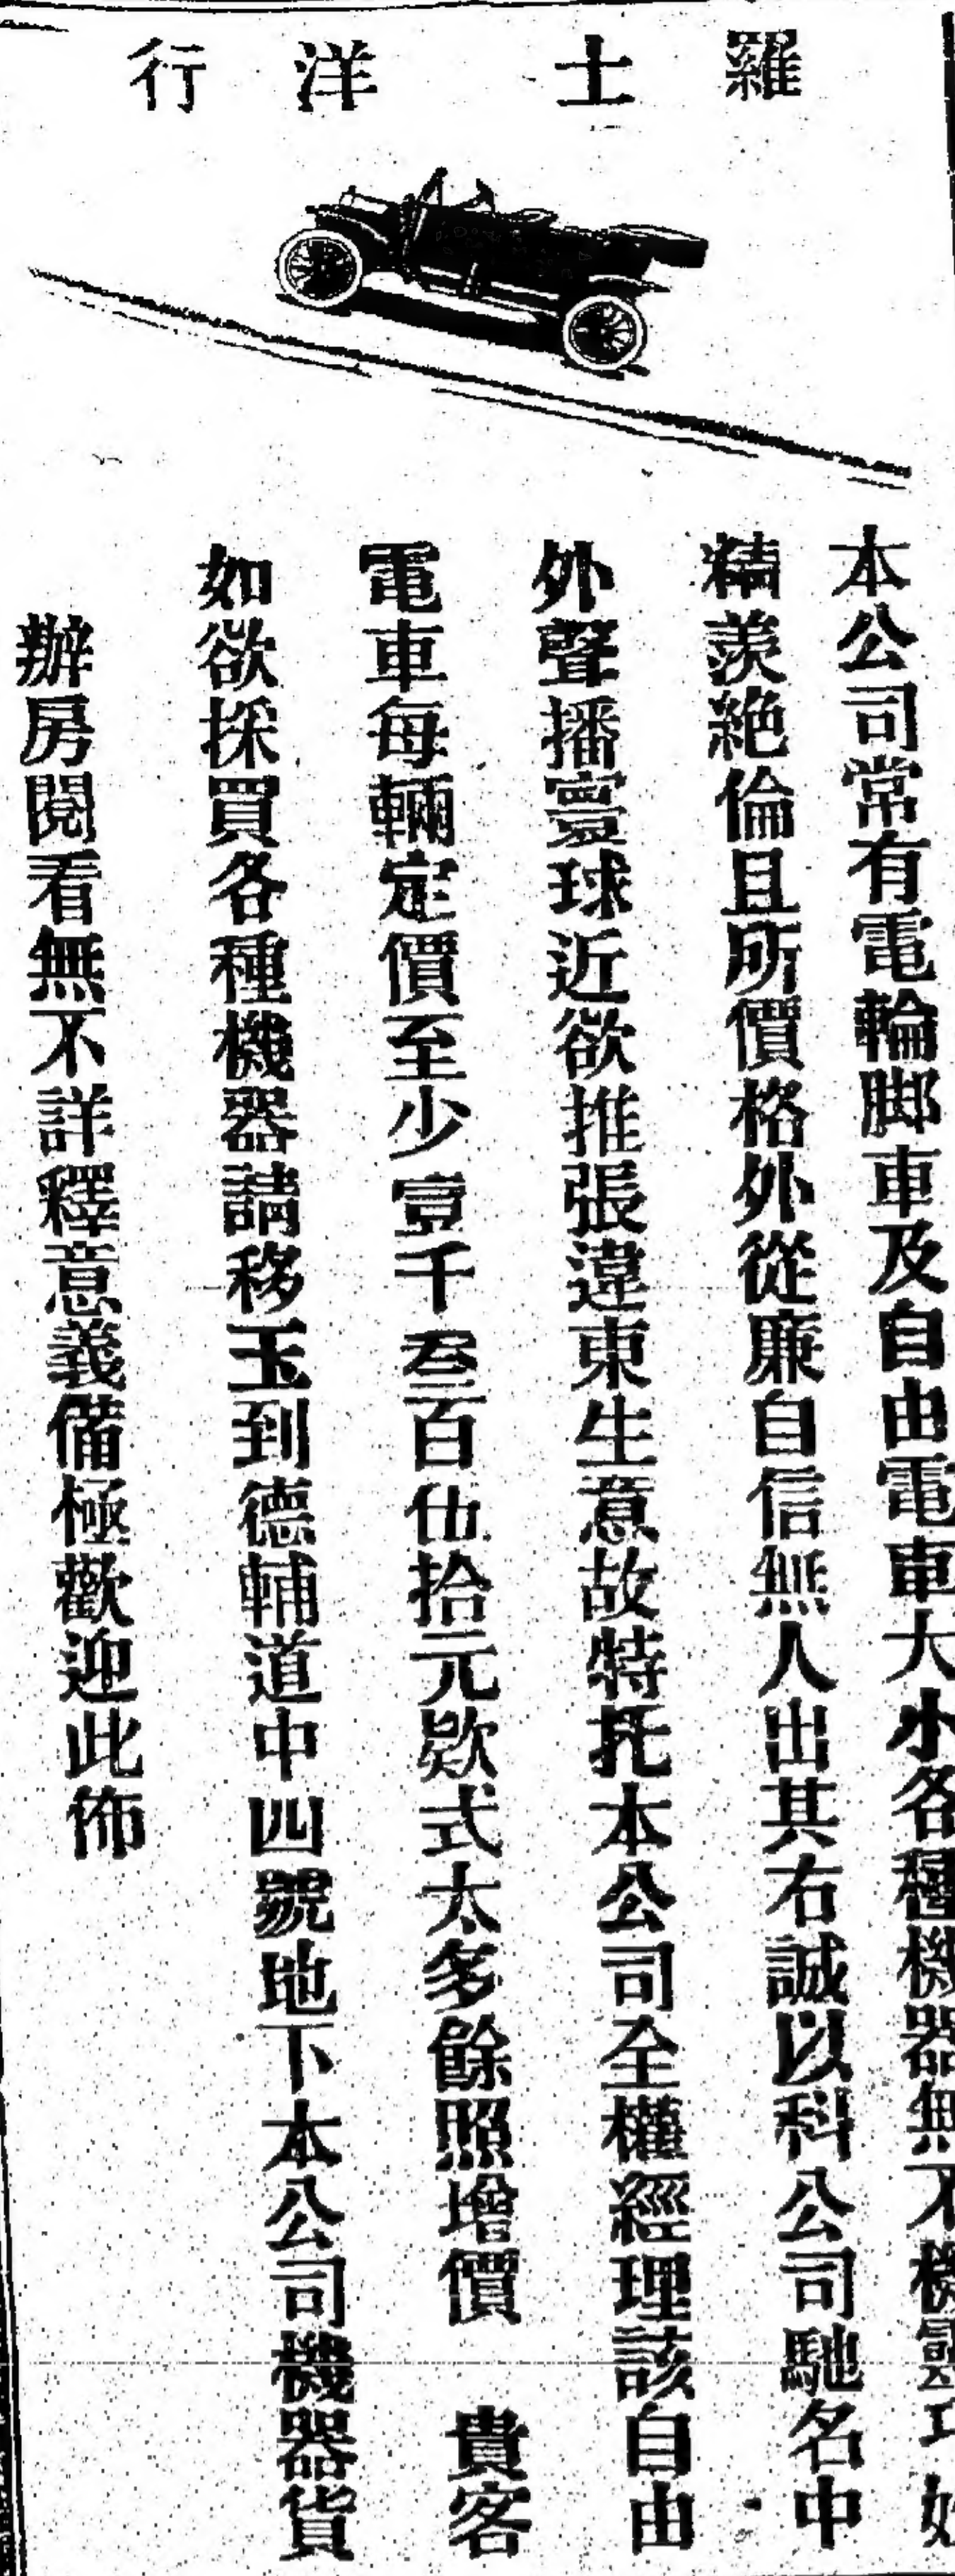 羅士洋行
本公司常有電輪脚車及自由電車大小各種機器無不機靈巧妙
精羨絶倫且所價格外從廉自信無人出其右誠以科公司馳名中
外聲播寰球近欲推張遠東生意故特托本公司全權經理該自由
電車每輛定價至少壹千叁百伍拾元欵式太多餘照增價　貴客
如欲採買各種機器請移玉到德輔道中四號地下本公司機器貨
辦房閱看無不詳釋意義備極歡迎此佈